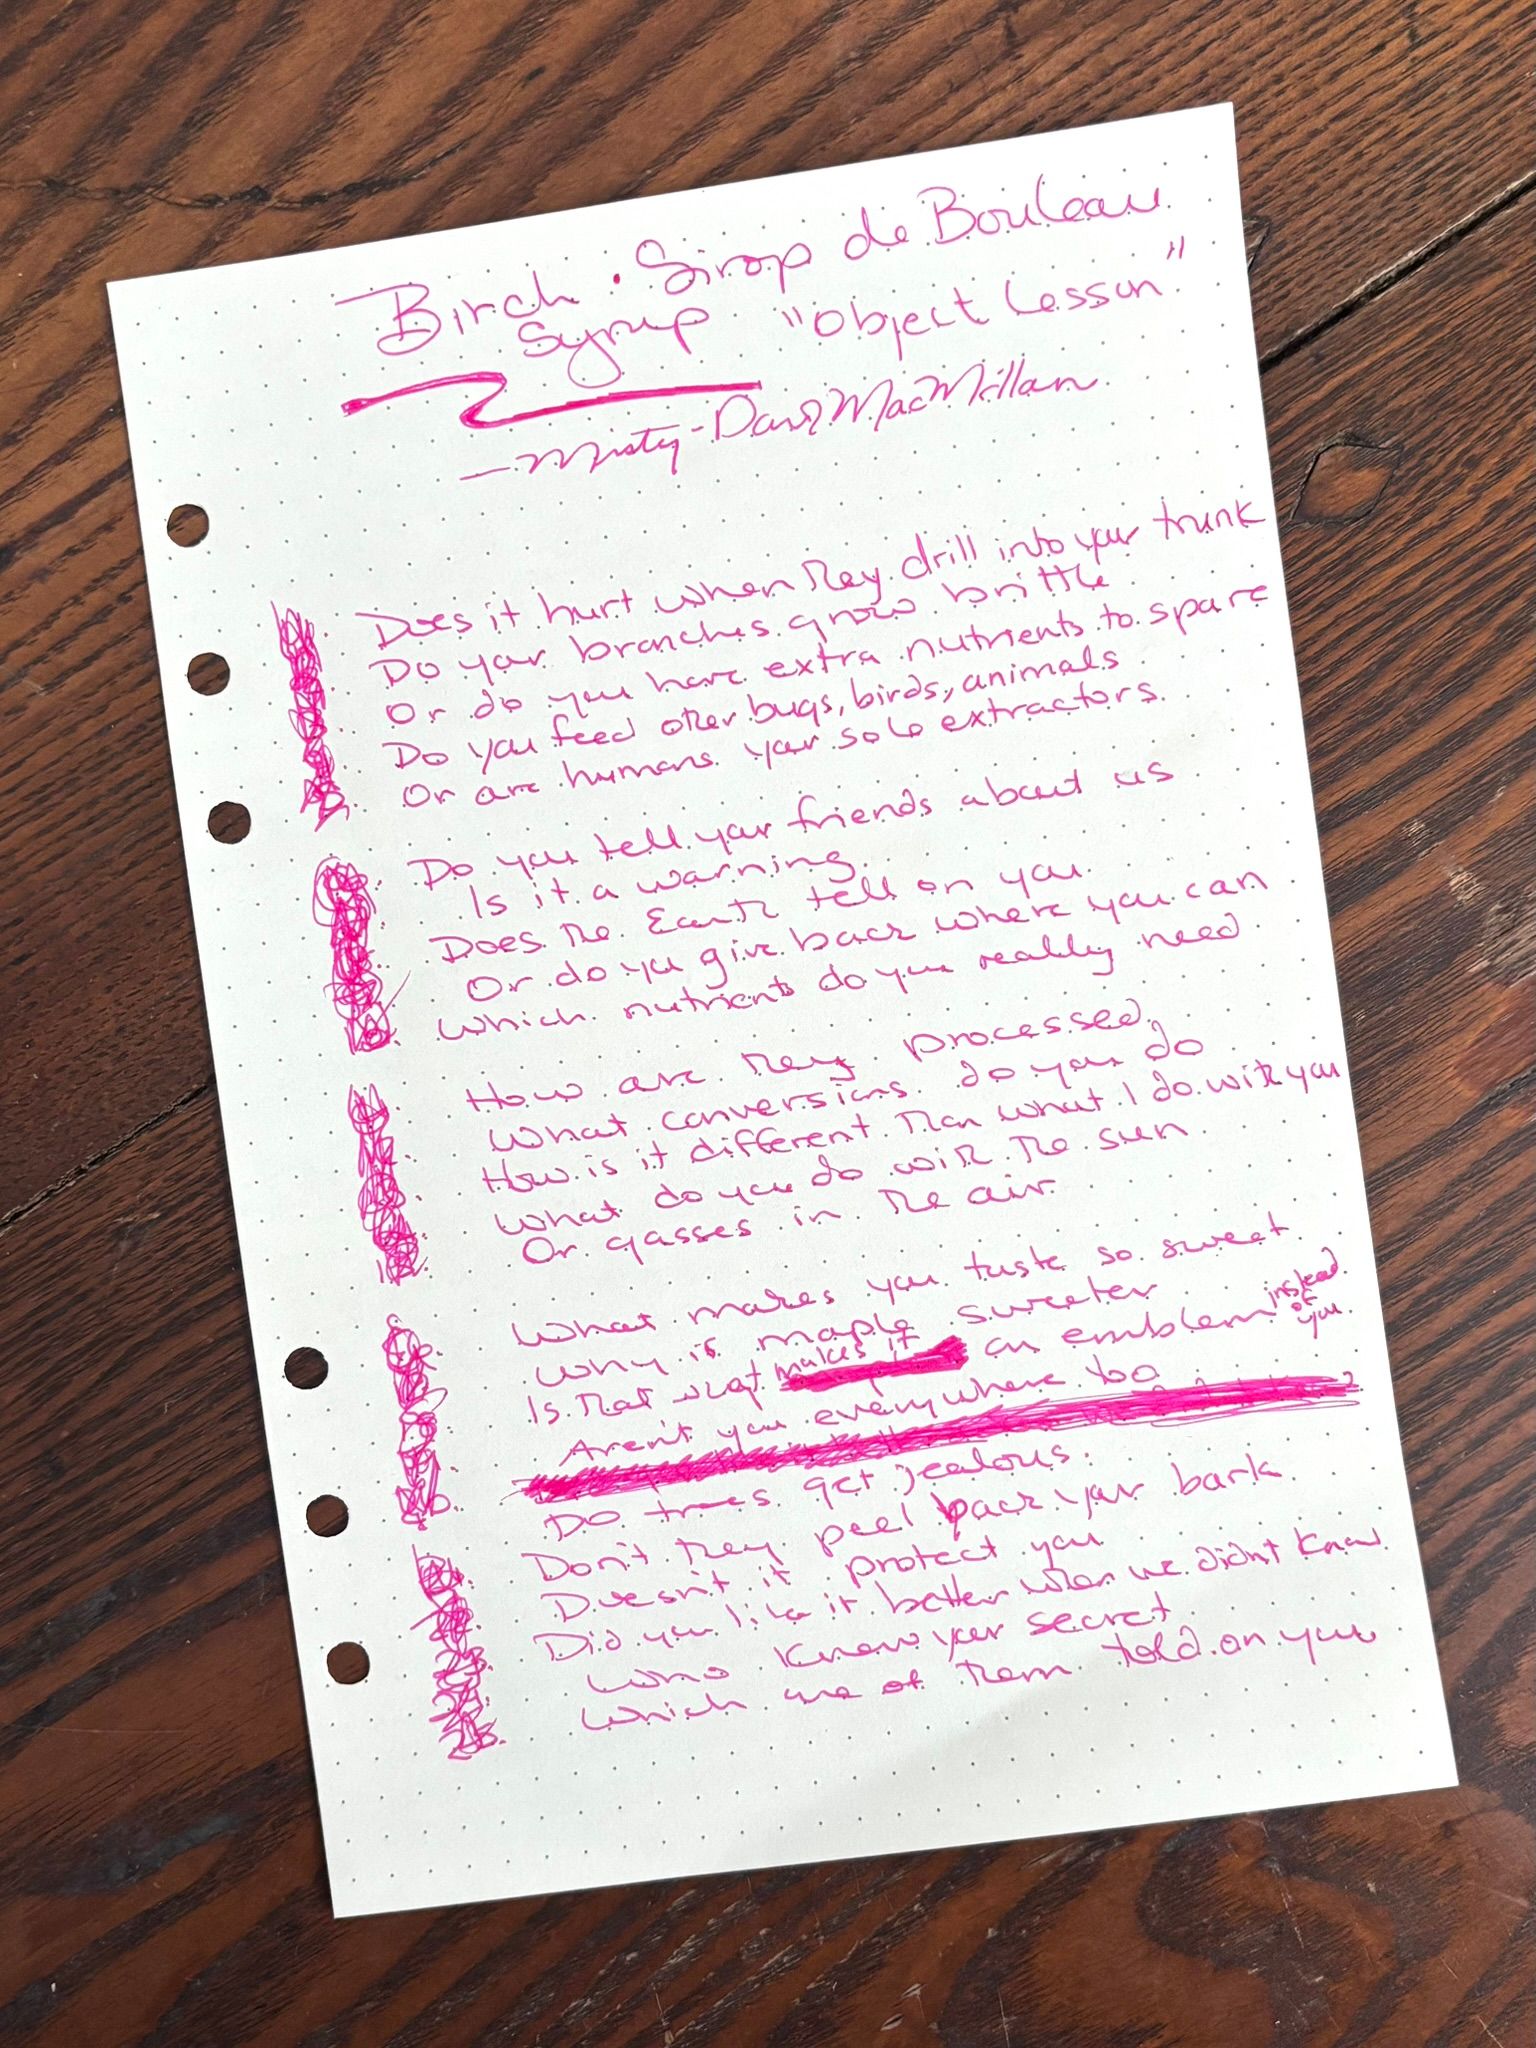 Birch . Sirop de Bouleau
Syrup "Object Lesson"
— Misty-Dawn MacMillan
Does it hurt when they drill into your trunk
Do your branches grow brittle
Or do you have extra nutrients to spare
Do you feed other bugs, birds, animals
Or are humans your sole extractors
Do you tell your friends about us
Is it a warning
Does the Earth tell on you
Or do you give back where you can
Which nutrients do you really need
How are they processed
What conversions do you do
How is it different than what I do with you
What do you do with the sun
Or gasses in the air
What makes you taste so sweet
Why is maple sweeter
Is that what makes it an emblem instead of you
Aren't you everywhere too
Do trees get jealous
Don't they peel back your bark
Doesn't it protect you
Did you like it better when we didn't know
Who knew your secret
Which one of them told on you